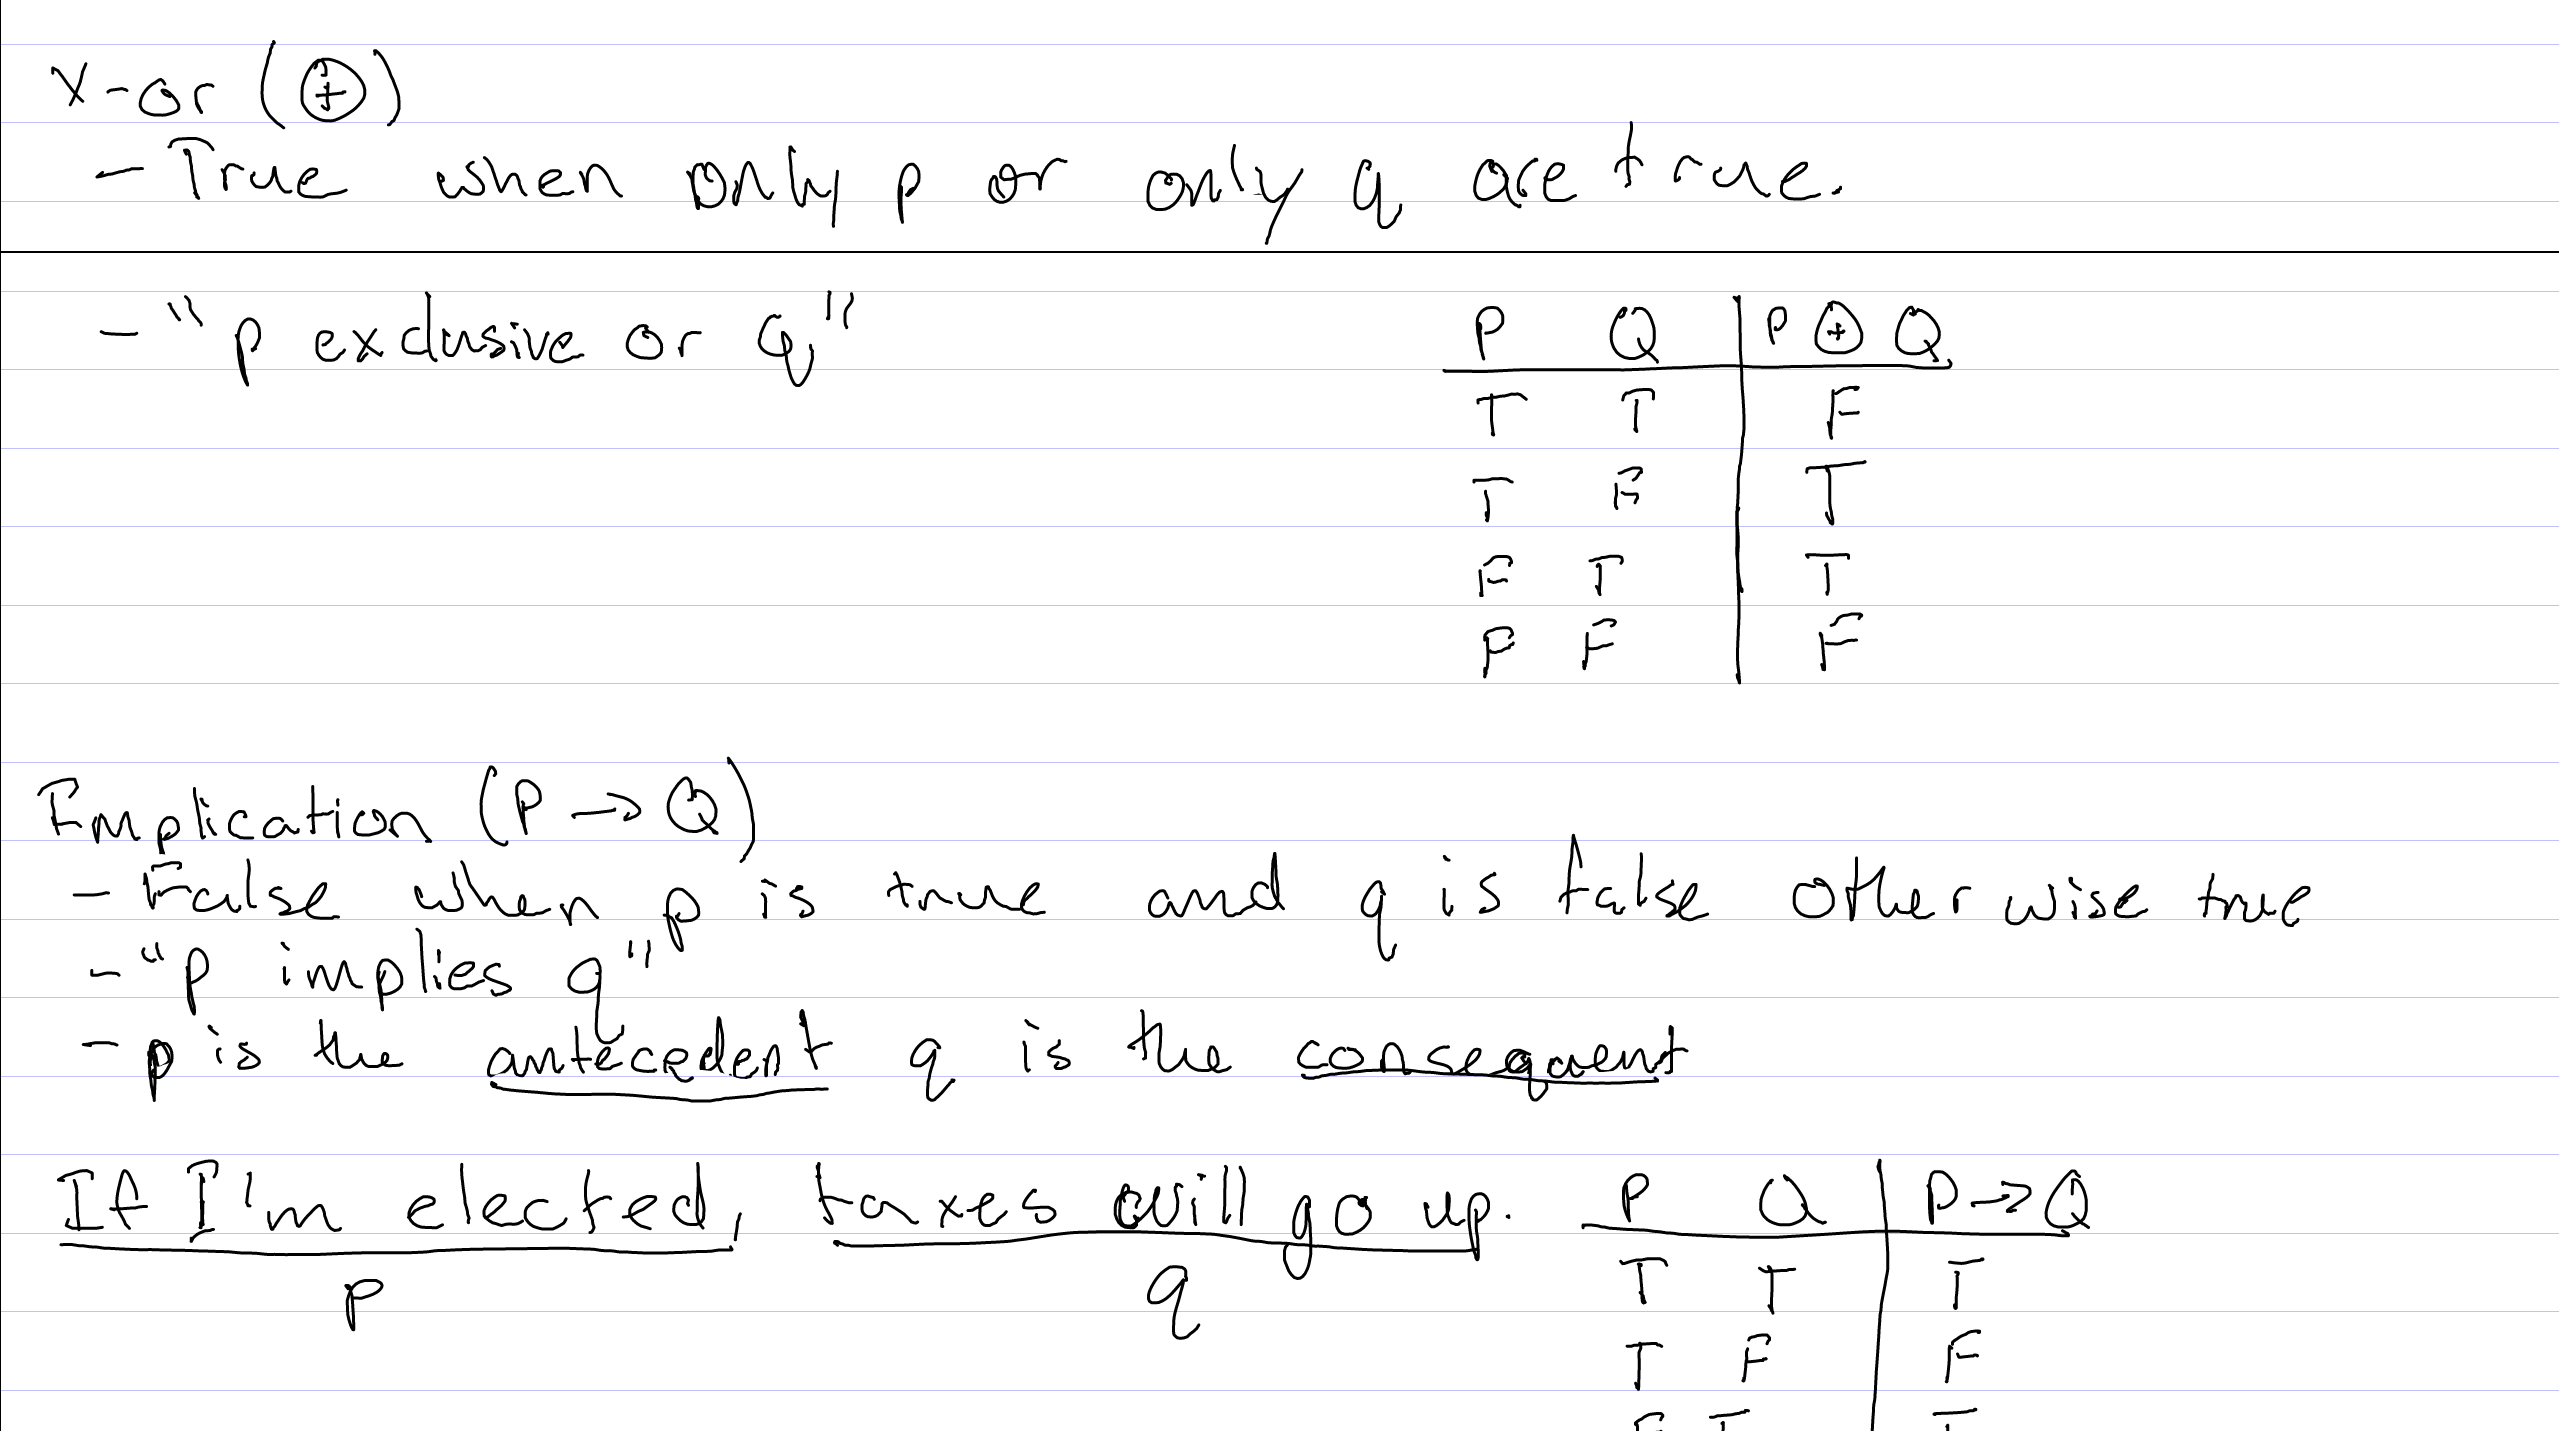 X-or (⊕)
- True when only p or only q are true.
- "p exclusive or q"
P Q | P ⊕ Q
T T | F
T F | T
F T | T
F F | F
Implication (P → Q)
- False when p is true and q is false otherwise true
- "p implies q"
- p is the antecedent q is the consequent
If I'm elected, taxes will go up.
p q
P Q | P → Q
T T | T
T F | F
F T | T